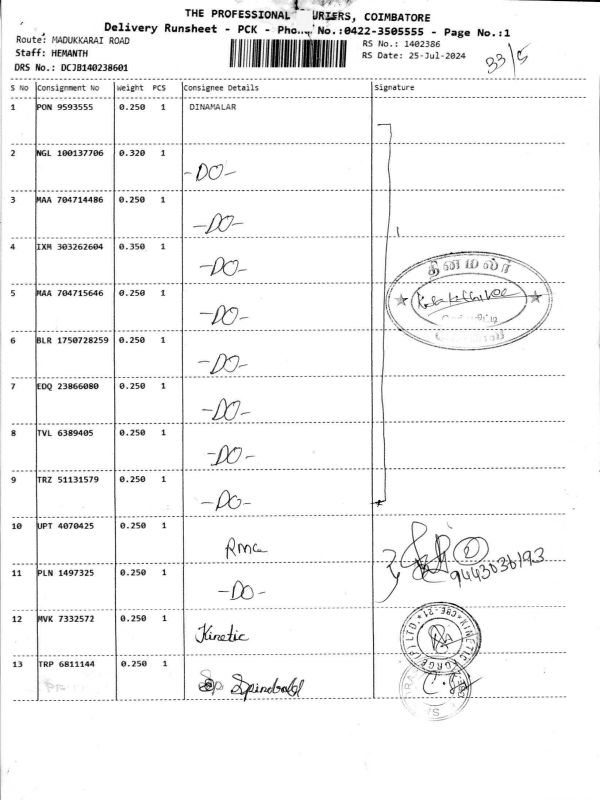 THE PROFESSIONAL COURIERS, COIMBATORE
Delivery Runsheet - PCK - Phone No.:0422-3505555 - Page No.:1
Route: MADUKKARAI ROAD
Staff: HEMANTH
DRS No.: DCJB140238601
RS No.: 1402386
RS Date: 25-Jul-2024
33/5
S No Consignment No Weight PCS Consignee Details Signature
1 PON 9593555 0.250 1 DINAMALAR
2 NGL 100137706 0.320 1 -DO-
3 MAA 704714486 0.250 1 -DO-
4 IXM 303262604 0.350 1 -DO-
தினமலர்
5 MAA 704715646 0.250 1 -DO-
6 BLR 1750728259 0.250 1 -DO-
7 EDQ 23866080 0.250 1 -DO-
8 TVL 6389405 0.250 1 -DO-
9 TRZ 51131579 0.250 1 -DO-
10 UPT 4070425 0.250 1 RMC
9443036193
11 PLN 1497325 0.250 1 -DO-
12 MVK 7332572 0.250 1 Kinetic
KINETIC FORGE (P) LTD. CBE-21
13 TRP 6811144 0.250 1